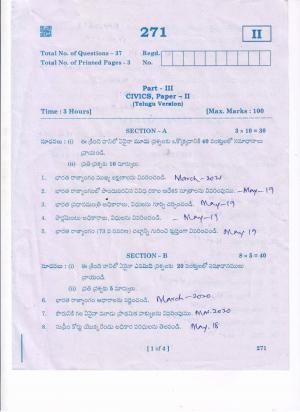 271
II
Total No. of Questions - 37
Total No. of Printed Pages - 3
Regd.
No.
Part - III
CIVICS, Paper - II
(Telugu Version)
Time : 3 Hours]
[Max. Marks : 100
SECTION - A
3 x 10 = 30
సూచనలు : (i) ఈ క్రింది వానిలో ఏవైనా మూడు ప్రశ్నలకు ఒక్కొక్కదానికి 40 పంక్తులలో సమాధానాలు
వ్రాయండి.
(ii) ప్రతి ప్రశ్నకు 10 మార్కులు.
1. భారత రాజ్యాంగం ముఖ్య లక్షణాలను వివరించండి. March-2020
2. భారత రాజ్యాంగంలో పొందుపరచిన వివిధ రకాల ఆదేశిక సూత్రాలను వివరింపుము. - May-19
3. భారత ప్రధానమంత్రి అధికారాలు, విధులను గూర్చి చర్చించండి. May-19
4. పార్లమెంటు అధికారాలు, విధులను వివరించండి. - May-19
5. భారత రాజ్యాంగం (73 వ సవరణ) చట్టాన్ని గురించి వివరించండి. May 19
SECTION - B
8 x 5 = 40
సూచనలు : (i) ఈ క్రింది వానిలో ఏవైనా ఎనిమిది ప్రశ్నలకు 20 పంక్తులలో సమాధానములు
వ్రాయండి.
(ii) ప్రతి ప్రశ్నకు 5 మార్కులు.
6. భారత రాజ్యాంగం ఆధారాలను వర్ణించండి. March-2020
7. పౌరునికి గల ఏవైనా మూడు ప్రాథమిక హక్కులను వివరింపుము. Mar.2020
8. సుప్రీం కోర్టు యొక్క రెండు అధికార పరిధులను తెలపండి. May. 18
[ 1 of 4 ]
271